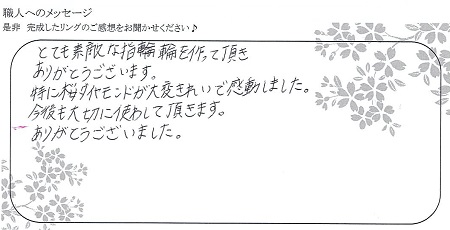 職人へのメッセージ
是非 完成したリングのご感想をお聞かせください♪
とても素敵な指輪輪を作って頂き
ありがとうございます。
特に桜ダイヤモンドが大変きれいで感動しました。
今後も大切に使わして頂きます。
ありがとうございました。